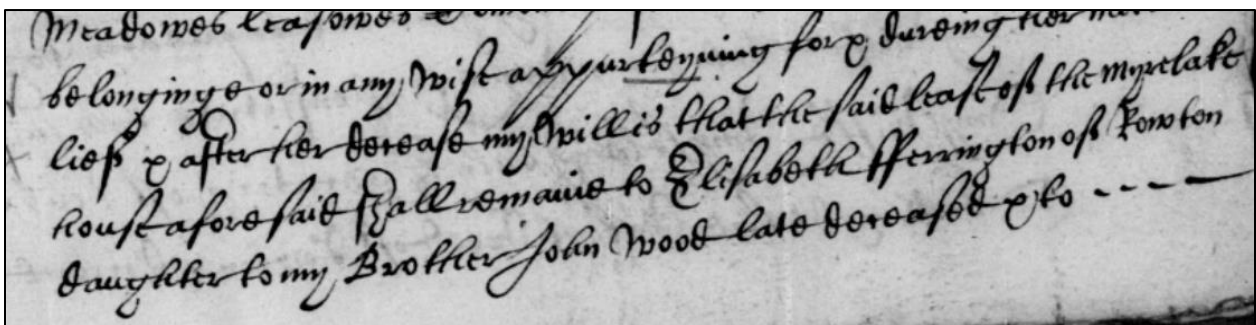 Meadowes leasowes
belonginge or in any wise appurteyning for & dureing her
lief & after her decease my Will is that the said lease of the Myrelake
house aforesaid shall remaine to Elisabeth fferrington of Rowton
daughter to my Brother John Wood late deceased & to - - - -